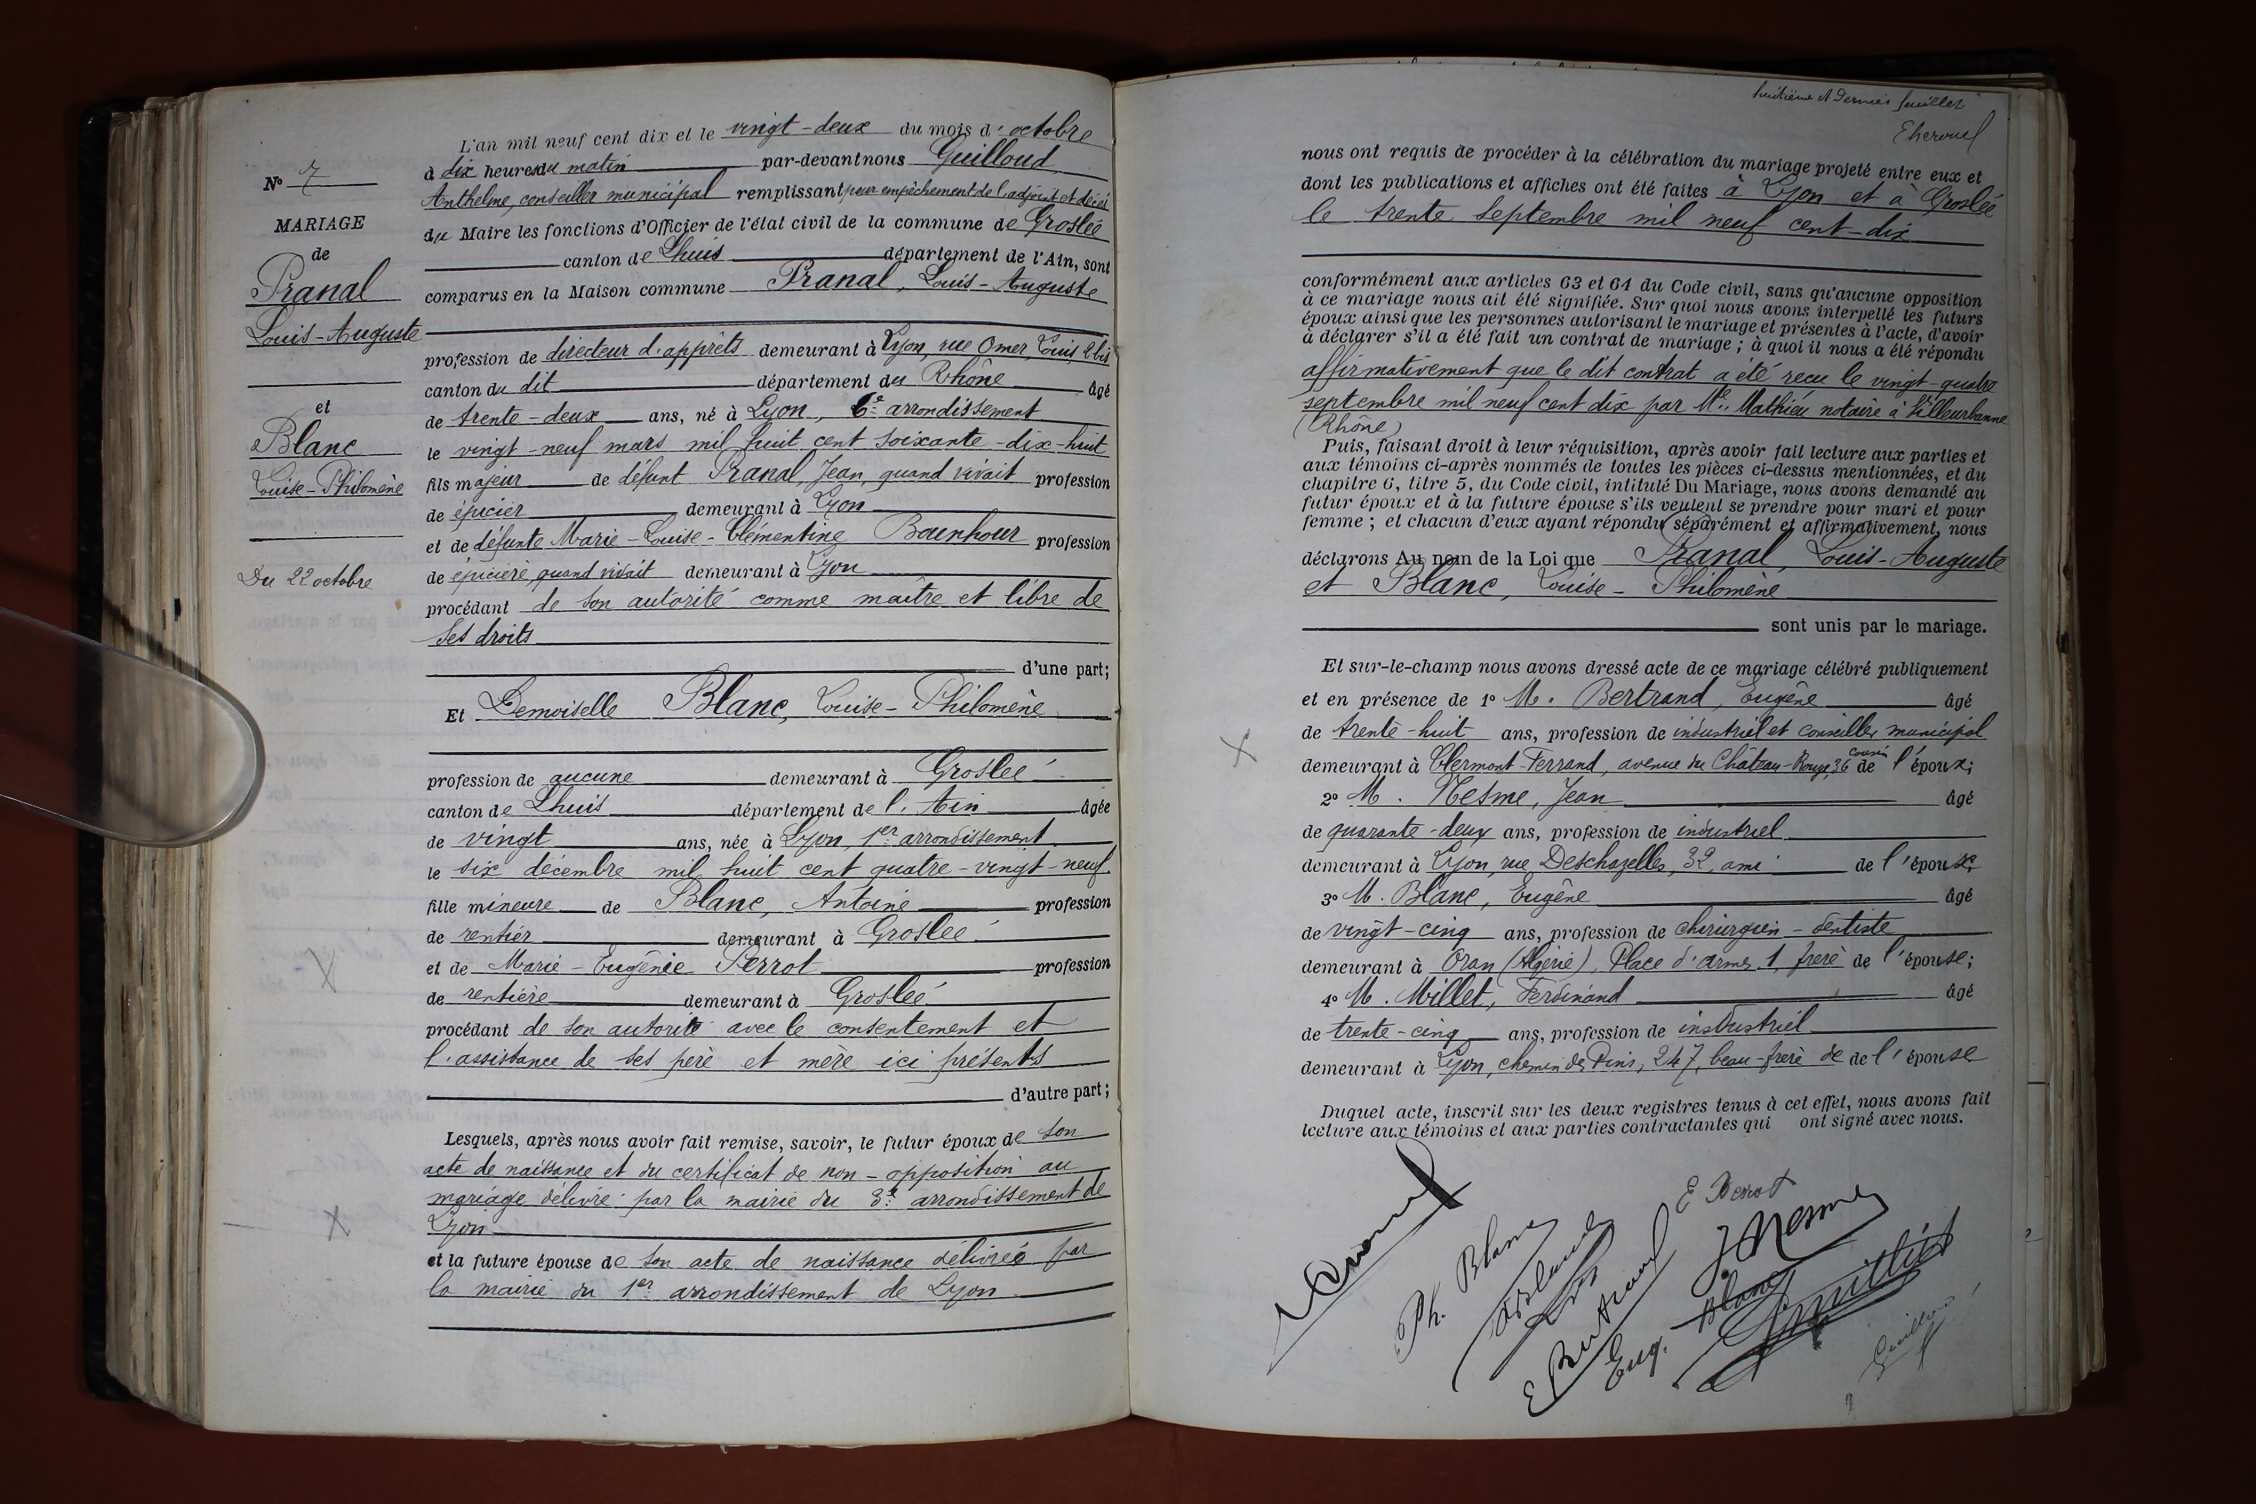 N° 7
MARIAGE
de
Pranal
Louis-Auguste
et
Blanc
Louise-Philomène
Du 22 octobre
L'an mil neuf cent dix et le vingt-deux du mois d'octobre
à dix heures du matin par-devant nous Guilloud
Anthelme, conseiller municipal remplissant pour empêchement de l'adjoint et décès
du Maire les fonctions d'Officier de l'état civil de la commune de Groslée
canton de Lhuis département de l'Ain, sont
comparus en la Maison commune Pranal, Louis-Auguste
profession de directeur d'apprêts demeurant à Lyon, rue Omer Louis, 2 bis
canton du dit département du Rhône âgé
de trente-deux ans, né à Lyon, 6e arrondissement
le vingt-neuf mars mil huit cent soixante-dix-huit
fils majeur de défunt Pranal, Jean, quand vivait profession
de épicier demeurant à Lyon
et de défunte Marie-Louise-Clémentine Bounhour profession
de épicière, quand vivait demeurant à Lyon
procédant de son autorité comme maître et libre de
ses droits
d'une part;
Et Demoiselle Blanc, Louise-Philomène
profession de aucune demeurant à Groslée
canton de Lhuis département de l'Ain âgée
de vingt ans, née à Lyon, 1er arrondissement
le six décembre mil huit cent quatre-vingt-neuf
fille mineure de Blanc, Antoine profession
de rentier demeurant à Groslée
et de Marie-Eugénie Perrot profession
de rentière demeurant à Groslée
procédant de son autorité avec le consentement et
l'assistance de ses père et mère ici présents
d'autre part;
Lesquels, après nous avoir fait remise, savoir, le futur époux de son
acte de naissance et du certificat de non-opposition au
mariage délivré par la mairie du 3e arrondissement de
Lyon
et la future épouse de son acte de naissance délivrée par
la mairie du 1er arrondissement de Lyon
huitième et dernier feuillet
nous ont requis de procéder à la célébration du mariage projeté entre eux et
dont les publications et affiches ont été faites à Lyon et à Groslée
le trente septembre mil neuf cent-dix
conformément aux articles 63 et 64 du Code civil, sans qu'aucune opposition
à ce mariage nous ait été signifiée. Sur quoi nous avons interpellé les futurs
époux ainsi que les personnes autorisant le mariage et présentes à l'acte, d'avoir
à déclarer s'il a été fait un contrat de mariage; à quoi il nous a été répondu
affirmativement que le dit contrat a été reçu le vingt-quatre
septembre mil neuf cent dix par Me. Mathieu notaire à Villeurbanne
(Rhône)
Puis, faisant droit à leur réquisition, après avoir fait lecture aux parties et
aux témoins ci-après nommés de toutes les pièces ci-dessus mentionnées, et du
chapitre 6, titre 5, du Code civil, intitulé Du Mariage, nous avons demandé au
futur époux et à la future épouse s'ils veulent se prendre pour mari et pour
femme; et chacun d'eux ayant répondu séparément et affirmativement, nous
déclarons Au nom de la Loi que Pranal, Louis-Auguste
et Blanc, Louise-Philomène
sont unis par le mariage.
Et sur-le-champ nous avons dressé acte de ce mariage célébré publiquement
et en présence de 1° M. Bertrand, Eugène âgé
de trente-huit ans, profession de industriel et conseiller municipal
demeurant à Clermont-Ferrand, avenue du Château-Rouge, 36 cousin de l'époux;
2° M. Nesme, Jean âgé
de quarante-deux ans, profession de industriel
demeurant à Lyon, rue Deschazelles, 32, ami de l'époux;
3° M. Blanc, Eugène âgé
de vingt-cinq ans, profession de chirurgien-dentiste
demeurant à Oran (Algérie), Place d'armes 1, frère de l'épouse;
4° M. Millet, Ferdinand âgé
de trente-cinq ans, profession de industriel
demeurant à Lyon, chemin des Pins, 247, beau-frère de de l'épouse
Duquel acte, inscrit sur les deux registres tenus à cet effet, nous avons fait
lecture aux témoins et aux parties contractantes qui ont signé avec nous.
Ph. Blanc
E Perrot
J Nesme
E Bertrand
Eug. Blanc
Millet
Guilloud